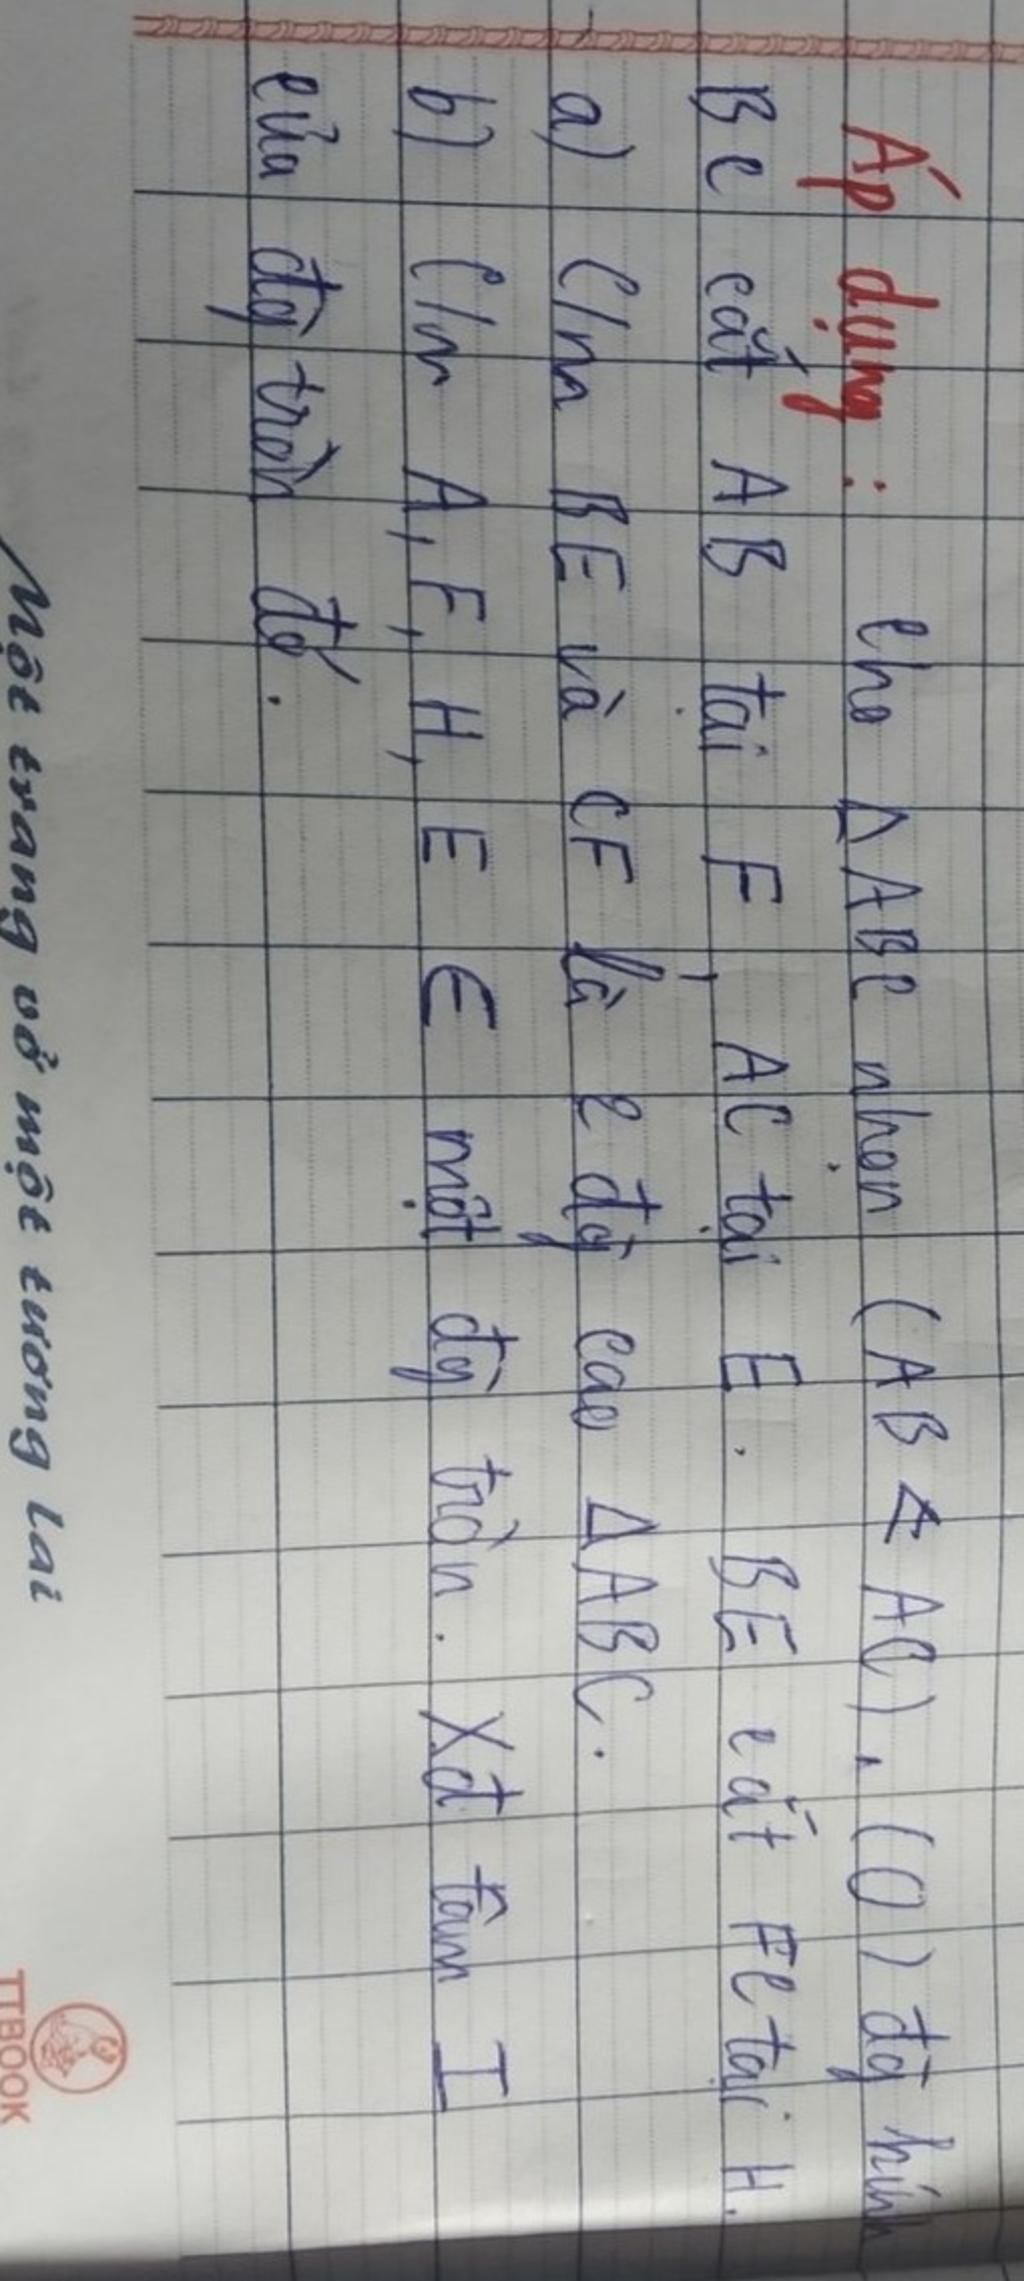 Áp dụng: Cho ΔABC nhọn (AB < AC), (O) đg kính
BC cắt AB tại F, AC tại E. BE cắt FC tại H.
a) C/m BE và CF là 2 đg cao ΔABC.
b) C/m A, F, H, E ∈ một đg tròn. Xđ tâm I
của đg tròn đó.
Một trang vở một tương lai
TTBOOK